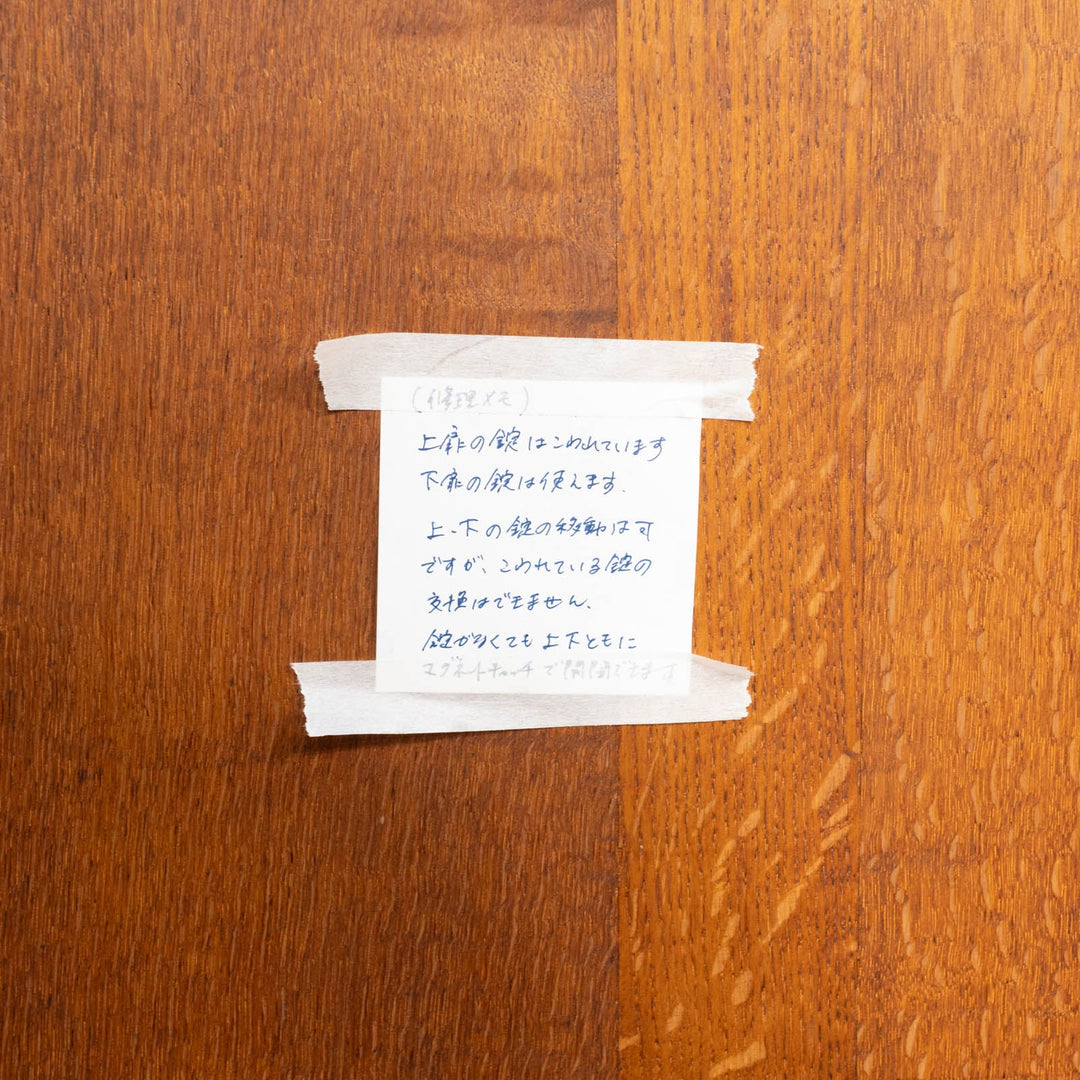 (修理メモ)
上扉の錠はこわれています
下扉の錠は使えます.
上、下の錠の移動は可
ですが、こわれている錠の
交換はできません、
錠がなくても上下ともに
マグネットキャッチで開閉できます